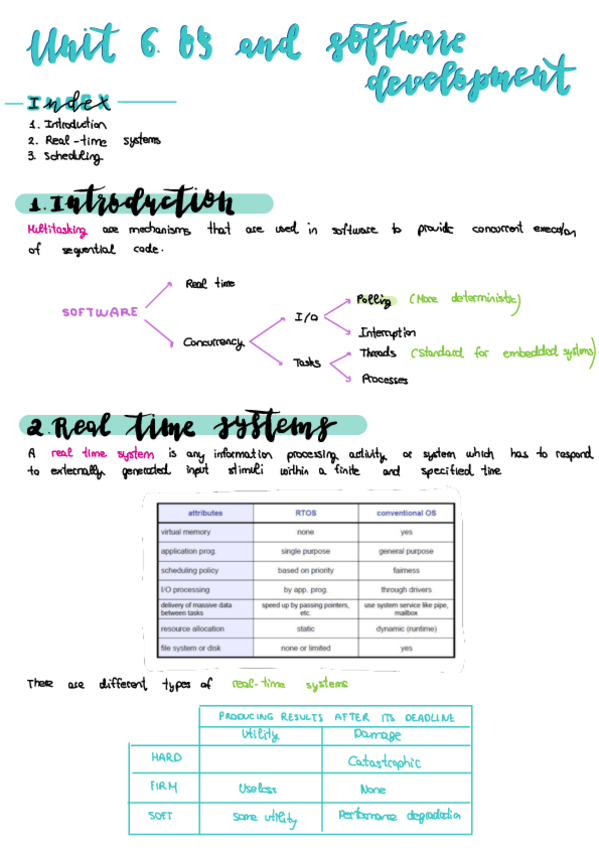 Unit 6. OS and software
development
Index
1. Introduction
2. Real-time systems
3. Scheduling
1. Introduction
Multitasking are mechanisms that are used in software to provide concurrent execution
of sequential code.
Real time
SOFTWARE
Concurrency
I/O
Polling (More deterministic)
Interruption
Tasks
Threads (Standard for embedded systems)
Processes
2. Real time systems
A real time system is any information processing activity or system which has to respond
to externally generated input stimuli within a finite and specified time
attributes RTOS conventional OS
virtual memory none yes
application prog. single purpose general purpose
scheduling policy based on priority fairness
I/O processing by app. prog. through drivers
delivery of massive data between tasks speed up by passing pointers, etc. use system service like pipe, mailbox
resource allocation static dynamic (runtime)
file system or disk none or limited yes
There are different types of real-time systems
PRODUCING RESULTS AFTER ITS DEADLINE
Utility Damage
HARD Catastrophic
FIRM Useless None
SOFT Some utility Performance degradation